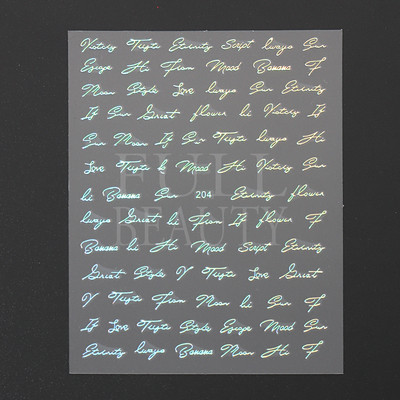 Victory Trigte Eternity Script lwayo Sun
Escape Hi Fiam Mood Banana F
Moon Style Love lwayo Sun Eternity
If Sun Great flower hi Victory If
Sun Moon If Sun Trigte lwayo Hi
Love Trigte hi Mood Hi Victory Sun
FULL
hi Banana Sun 204 Eternity flower
lwayo Great hi Fiam If flower F
BEAUTY
Banana hi Hi Mood Script Eternity
Great Style V Trigte Love Great
V Trigte Fiam Moon hi Sun F
If Love Trigte Style Escape Mood Sun
Eternity lwayo Banana Moon Hi F